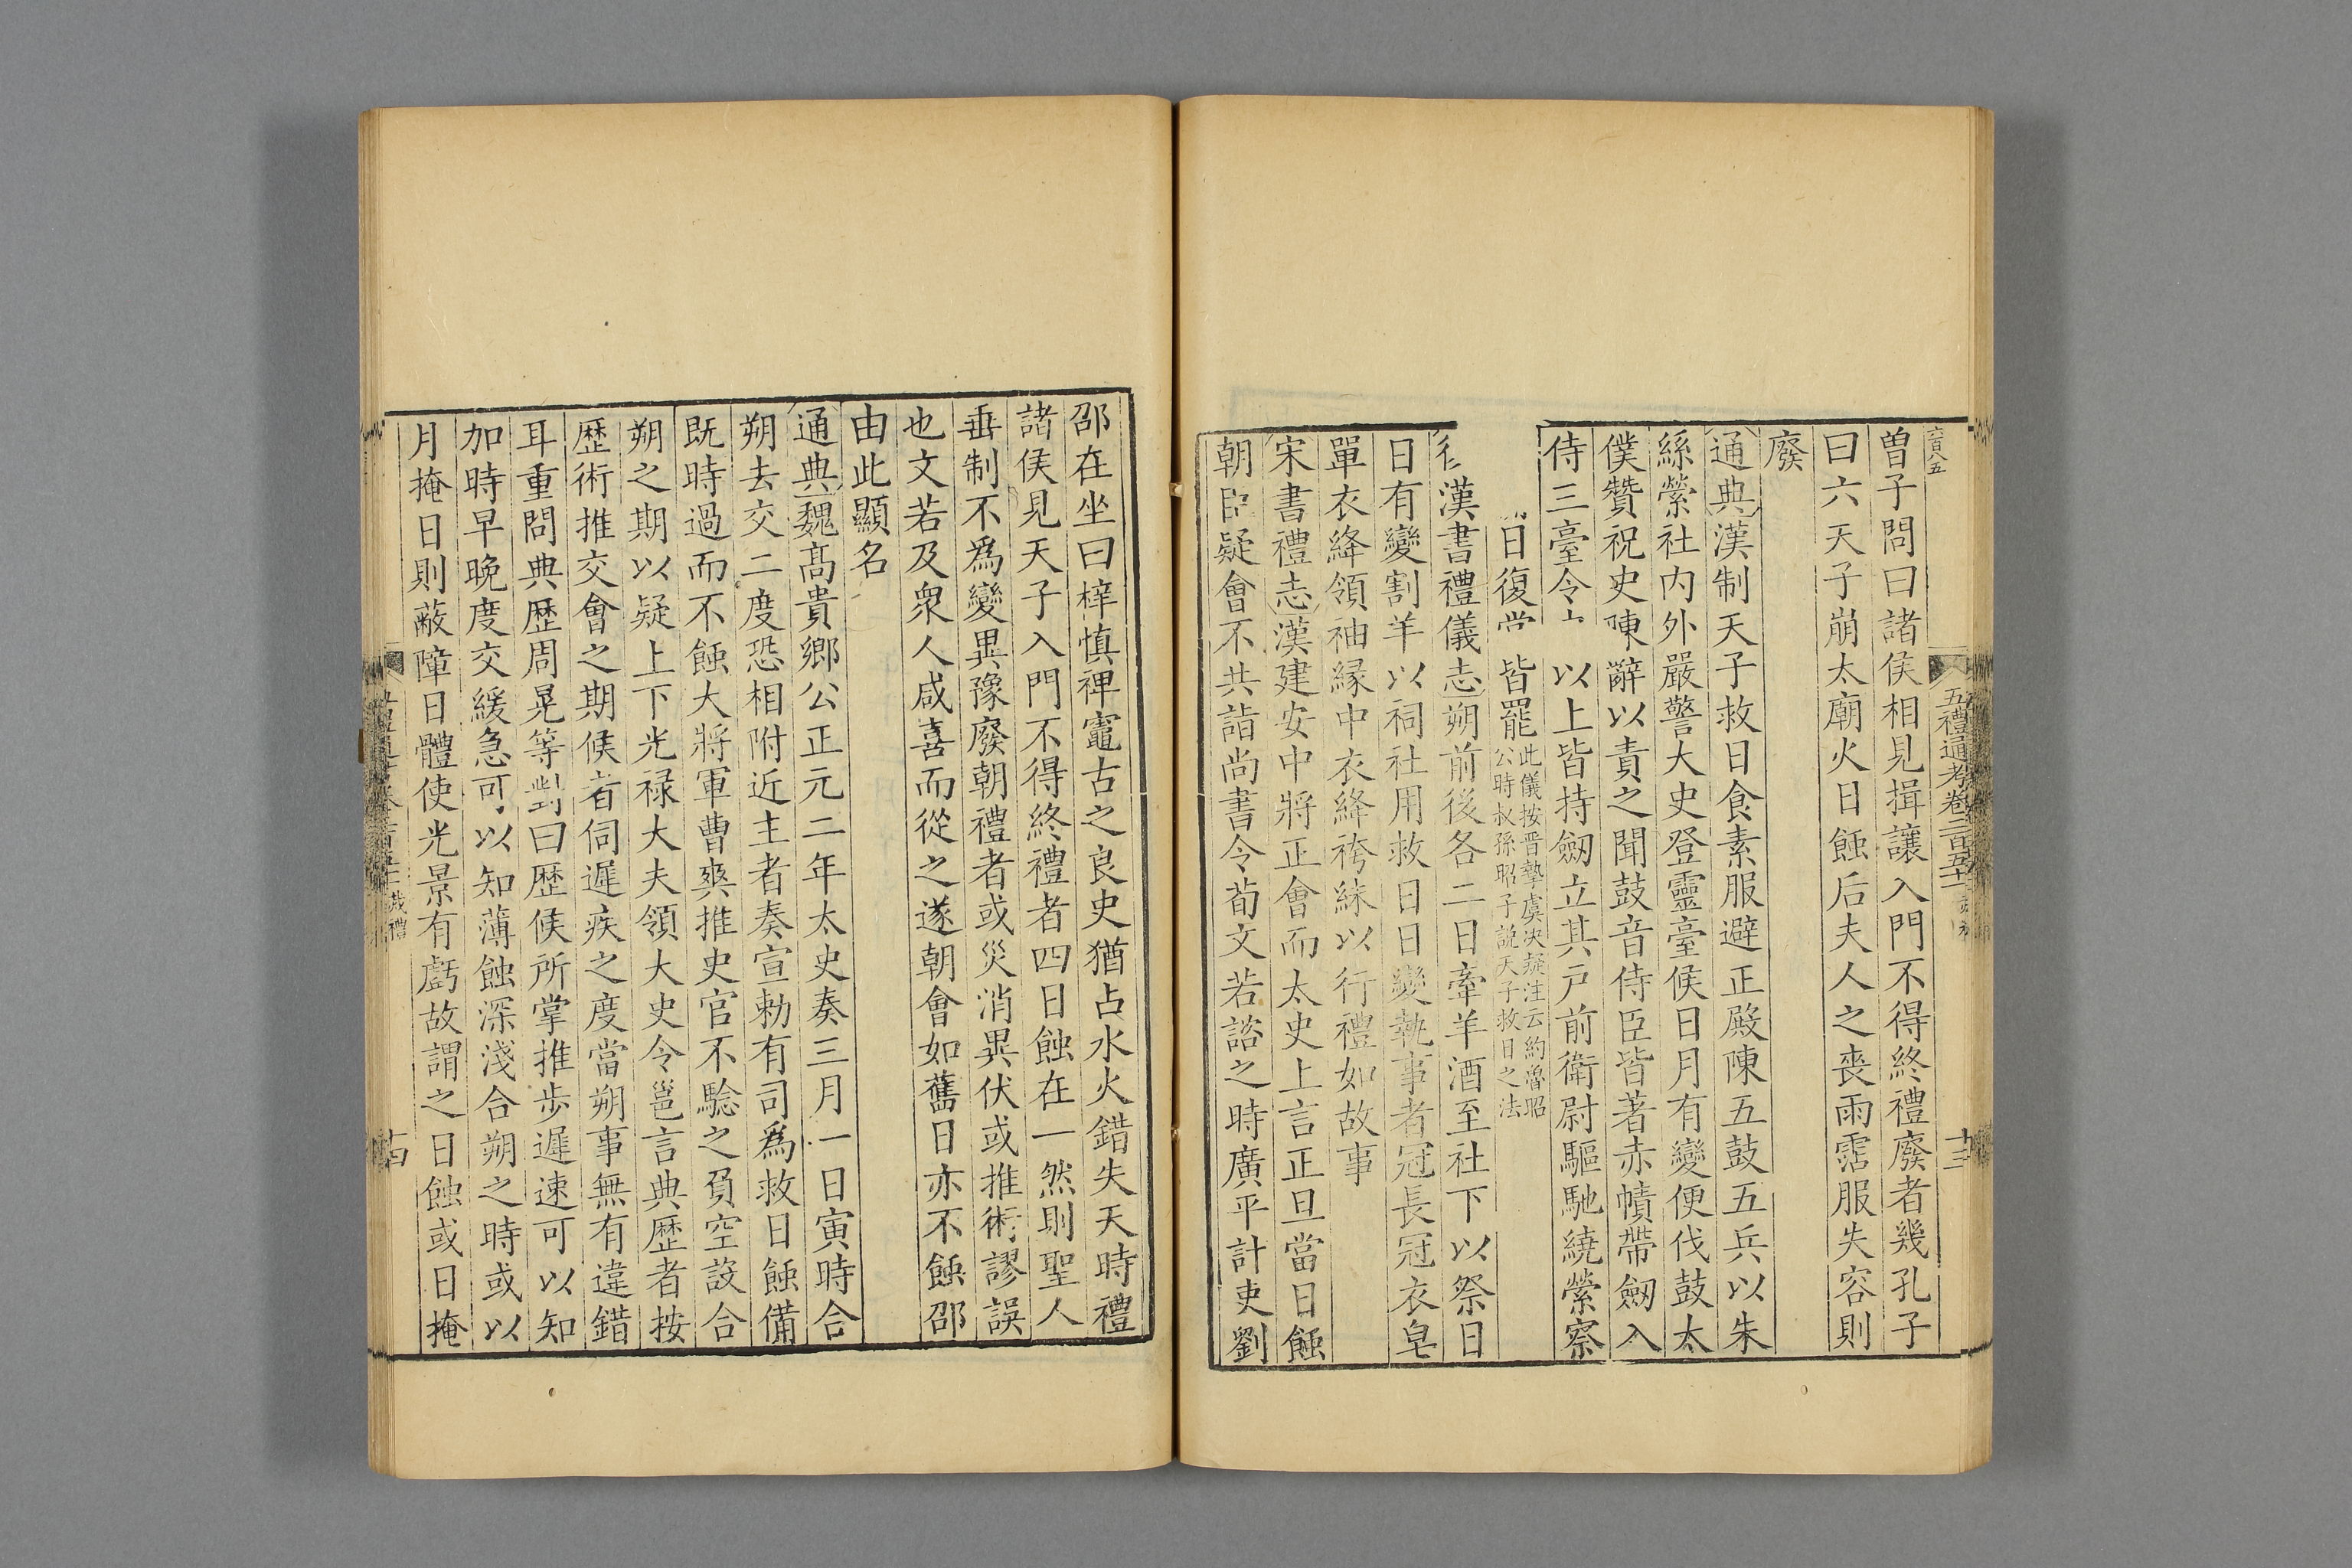 六百八五
五禮通考卷二百五十
十三
曾子問曰諸侯相見揖讓入門不得終禮廢者幾孔子
曰六天子崩太廟火日蝕后夫人之喪雨霑服失容則
廢
通典漢制天子救日食素服避正殿陳五鼓五兵以朱
絲縈社内外嚴警大史登靈臺候日月有變便伐鼓太
僕贊祝史陳辭以責之聞鼓音侍臣皆著赤幘帶劔入
侍三臺令 以上皆持劔立其戸前衛尉驅馳繞縈察
日復常皆罷此儀按晋摯虞决疑注云約魯昭
公時叔孫昭子說天子救日之法
漢書禮儀志朔前後各二日牽羊酒至社下以祭日
日有變割羊以祠社用救日日變執事者冠長冠衣皂
單衣絳領袖縁中衣絳袴䋽以行禮如故事
宋書禮志漢建安中將正會而太史上言正旦當日蝕
朝臣疑會不共詣尚書令荀文若諮之時廣平計吏劉
邵在坐曰梓慎禆竈古之良史猶占水火錯失天時禮
諸侯見天子入門不得終禮者四日蝕在一然則聖人
垂制不爲變異豫廢朝禮者或災消異伏或推術謬誤
也文若及衆人咸喜而從之遂朝會如舊日亦不蝕邵
由此顯名
通典魏髙貴鄉公正元二年太史奏三月一日寅時合
朔去交二度恐相附近主者奏宣勅有司爲救日蝕備
既時過而不蝕大將軍曹爽推史官不騐之負空設合
朔之期以疑上下光禄大夫領大史令邕言典歴者按
歴術推交會之期候者伺遲疾之度當朔事無有違錯
耳重問典歴周晃等對曰歴候所掌推步遲速可以知
加時早晚度交緩急可以知薄蝕深淺合朔之時或以
月掩日則蔽障日體使光景有虧故謂之日蝕或日掩
十四